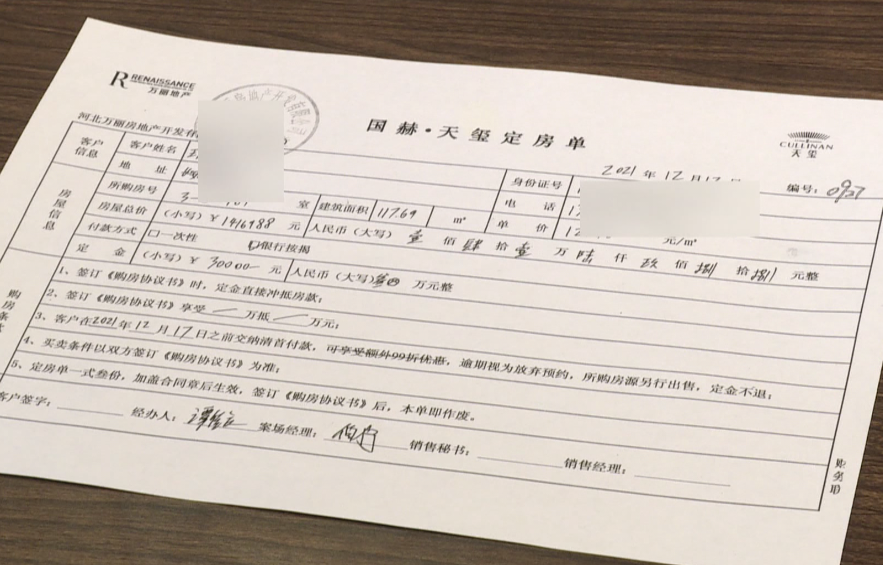 RENAISSANCE
万丽地产
国赫·天玺定房单
CULLINAN
天玺
河北万丽房地产开发有
2021年12月1 编号：0927
客户信息 客户姓名 身份证号
地址 电话
房屋信息 所购房号 3 室 建筑面积 117.69 m² 单价 12 元/m²
房屋总价 （小写）￥1416988元 人民币（大写）壹佰肆拾壹万陆仟玖佰捌拾捌元整
付款方式 □一次性 ☑银行按揭
定金 （小写）￥30000元 人民币（大写） 万元整
购房条款
1、签订《购房协议书》时，定金直接冲抵房款；
2、签订《购房协议书》享受 万抵 万元；
3、客户在2021年12月17日之前交纳清首付款，可享受额外99折优惠，逾期视为放弃预约，所购房源另行出售，定金不退；
4、买卖条件以双方签订《购房协议书》为准；
5、定房单一式叁份，加盖合同章后生效，签订《购房协议书》后，本单即作废。
客户签字： 经办人： 案场经理： 销售秘书： 销售经理：
财务联